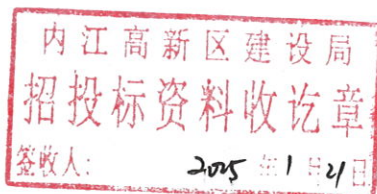 内江高新区建设局
招投标资料收讫章
签收人: 2025年1月21日